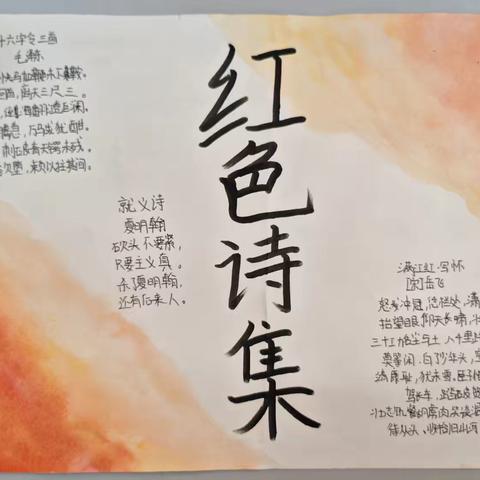 十六字令三首
毛泽东
快马加鞭未下鞍。
回首,离天三尺三。
,倒海翻江卷巨澜。
急,万马战犹酣。
刺破青天锷未残。
欲堕,赖以拄其间。
红色诗集
就义诗
夏明翰
砍头不要紧,
只要主义真。
杀夏明翰,
还有后来人。
满江红·写怀
[宋]岳飞
怒发冲冠,凭栏处,潇
抬望眼,仰天长啸,壮
三十功名尘与土,八千里
莫等闲、白少年头,空
靖康耻,犹未雪。臣子恨
驾长车,踏破贺
壮志饥餐胡虏肉,笑谈渴
待从头、收拾旧山河